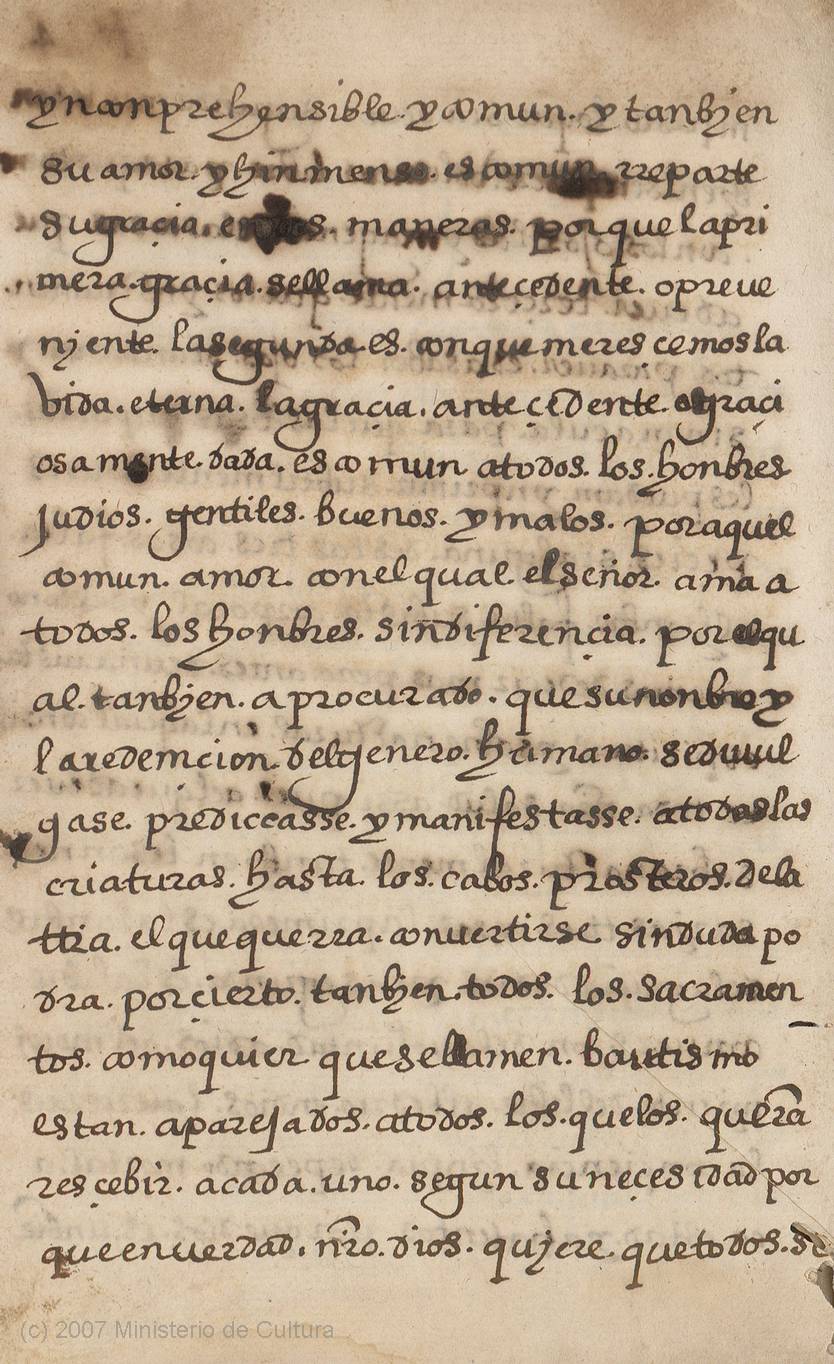 yn conprehensible. y comun. y tanbjen
su amor. y hinmenso. es comun rreparte
su gracia. en dos. maneras. porque la pri
mera. gracia. se llama. anteçedente. o preue
njente. la segunda. es. con que meresçemos la
vida. eterna. la graçia. anteçedente. o graçi
osamente. dada. es comun a todos. los. honbres
judios. gentiles. buenos. y malos. por aquel
comun. amor. con el qual. el señor. ama a
todos. los honbres. sin diferençia. por el qu
al. tanbjen. a procurado. que su nonbre y
la redemcion. del genero. humano. se diuul
gase. prediccasse. y manifestasse. a todas las
criaturas. hasta. los. cabos. prosteros. de la
ttia. el que querra. conuertirse sin duda po
dra. por çierto. tanbjen. todos. los. sacramen
tos. como quier que se llamen. bautismo
estan. aparejados. a todos. los. que los. querrā
resçebir. a cada. uno. segun su neçesidad por
que en uerdad. nr̄o. dios. qujere. que todos. se
(c) 2007 Ministerio de Cultura